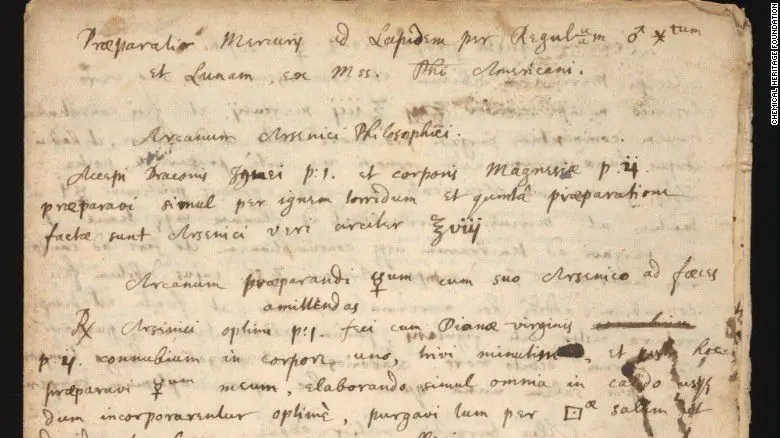 Præparatio Mercurij ad Lapidem per Regulum ♂ ✶tum
et Lunam, ex Mss. Phi Americani.
Arcanum Arsenici Philosophici.
Accepi Draconis Ignei p:1. et corporis Magnesiæ p ij.
præparavi simul per ignem torridum et quintâ præparatione
factæ sunt Arsenici veri circiter ℥viij
Arcanum præparandi ☿ium cum suo Arsenico ad fæces
amittendas
℞ Arsenici optimi p:1. feci cum Dianæ virginis
p ij. connubium in corpore uno, trivi minutim, et
præparavi ☿ium meum, elaborando simul omnia in
dum incorporarentur optimè, purgavi tum per salem
CHEMICAL HERITAGE FOUNDATION